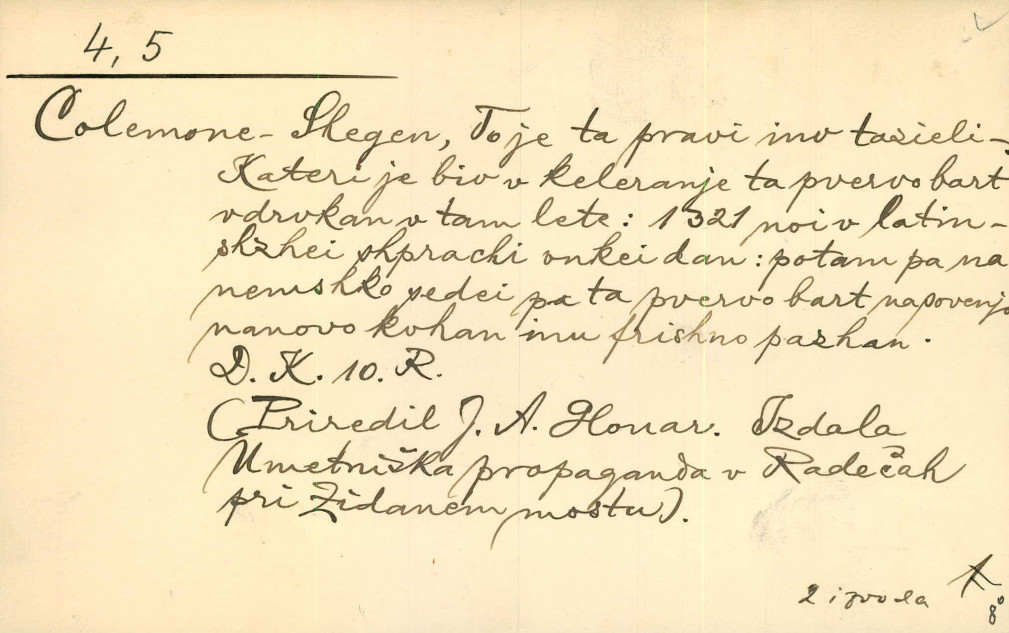 4, 5
Colemone - Shegen, To je ta pravi inv tazieli-
Kateri je biv v keleranje ta pvervo bart
vdrvkan v tam lete: 1321 noi v latin-
shzhei shprachi vnkei dan: potam pa na
nemshko sedei pa ta pvervo bart na povenjo
nanovo kvhan inu frishno pazhan.
D. K. 10. R.
(Priredil J. A. Glonar. Izdala
Umetniška propaganda v Radečah
pri Zidanem mostu).
2 izvoda
8°